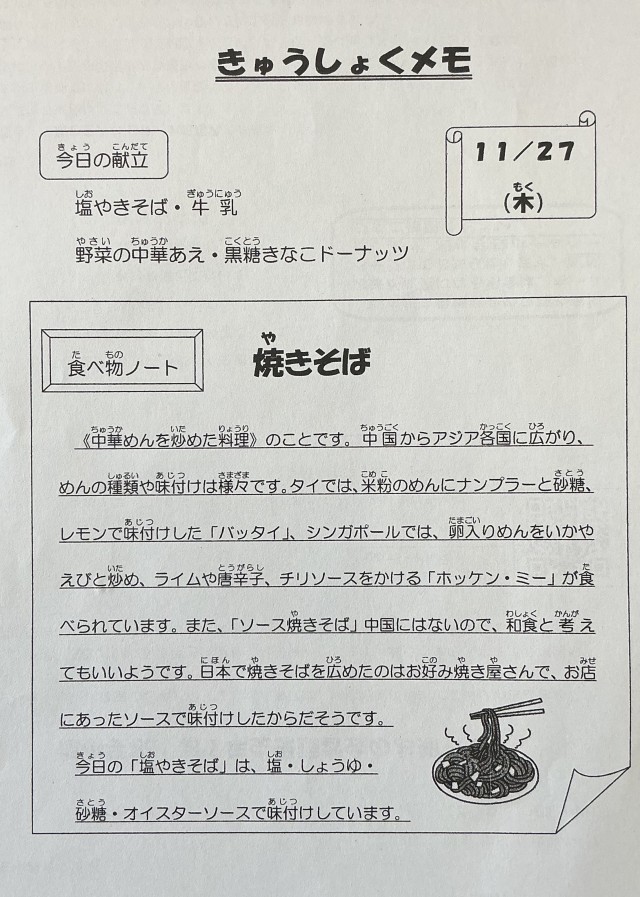 きゅうしょくメモ
今日の献立
11/27
(木)
塩やきそば・牛乳
野菜の中華あえ・黒糖きなこドーナッツ
食べ物ノート
焼きそば
《中華めんを炒めた料理》のことです。中国からアジア各国に広がり、
めんの種類や味付けは様々です。タイでは、米粉のめんにナンプラーと砂糖、
レモンで味付けした「パッタイ」、シンガポールでは、卵入りめんをいかや
えびと炒め、ライムや唐辛子、チリソースをかける「ホッケン・ミー」が食
べられています。また、「ソース焼きそば」中国にはないので、和食と考え
てもいいようです。日本で焼きそばを広めたのはお好み焼き屋さんで、お店
にあったソースで味付けしたからだそうです。
今日の「塩やきそば」は、塩・しょうゆ・
砂糖・オイスターソースで味付けしています。